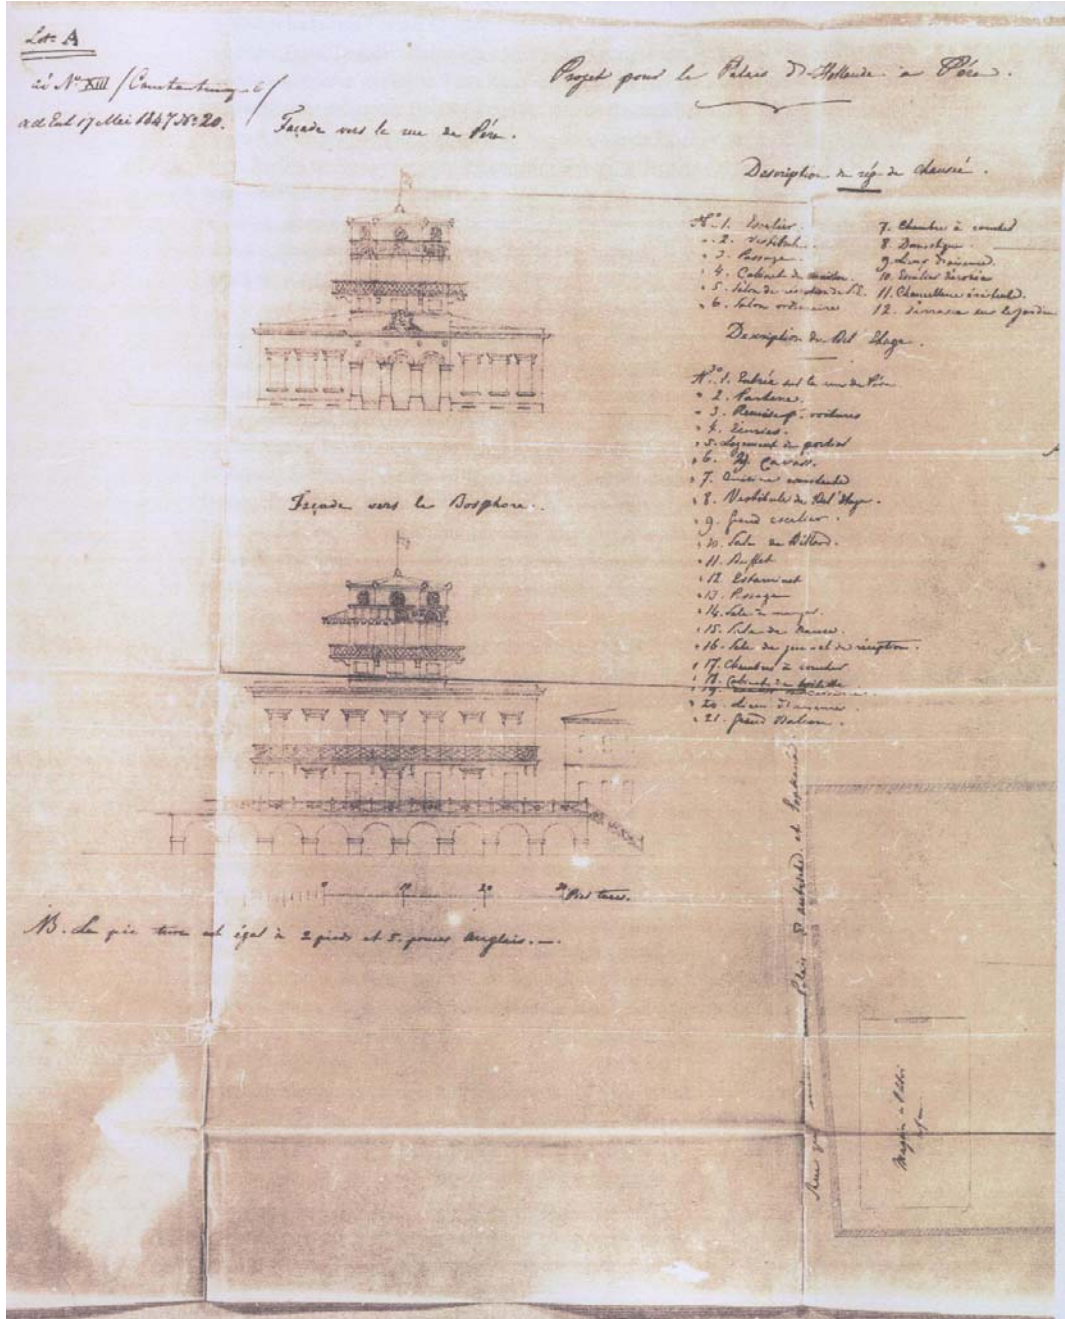 Lett A
ad Exh 17 Mei 1847 Nº 20.
Projet pour le Palais D'Hollande a Péra.
Façade vers le rue de Péra.
Description de chaussé.
Nº 1. Escalier.
" 2. Vestibule.
" 3. Passage.
" 4. Cabinet de
" 5. Salon de
" 6. Salon ordinaire
7. Chambre à coucher
8. Domestique
9. Lieux d'aisance.
10. Escalier
11. Chancellerie existente.
12. Terrasse sur le jardin
Description du Bel Etage.
Nº 1. Entrée sur la rue de Péra
" 2. Parterre.
" 3. Remise p. voitures
" 4. Ecuries.
" 5. Logement du portier
" 6. Cavass.
" 7. Cuisine existente
" 8. Vestibule du Bel Etage.
" 9. Grand escalier.
" 10. Sale de Billard.
" 11. Buffet
" 12. Estaminet
" 13. Passage
" 14. Sale à manger.
" 15. Sale de Danse.
" 16. Sale de jeu et de réception.
" 17. Chambres à coucher
" 18. Cabinet de toilette
" 19.
" 20. Lieux d'aisances
" 21. Grand Balcon.
Façade vers le Bosphore.
0 10 20 30 Pics turcs.
NB. Le pic turc est égal à 2 pieds et 5. pouces Anglais.
Rue qui Palais et
Magasin à l'abri